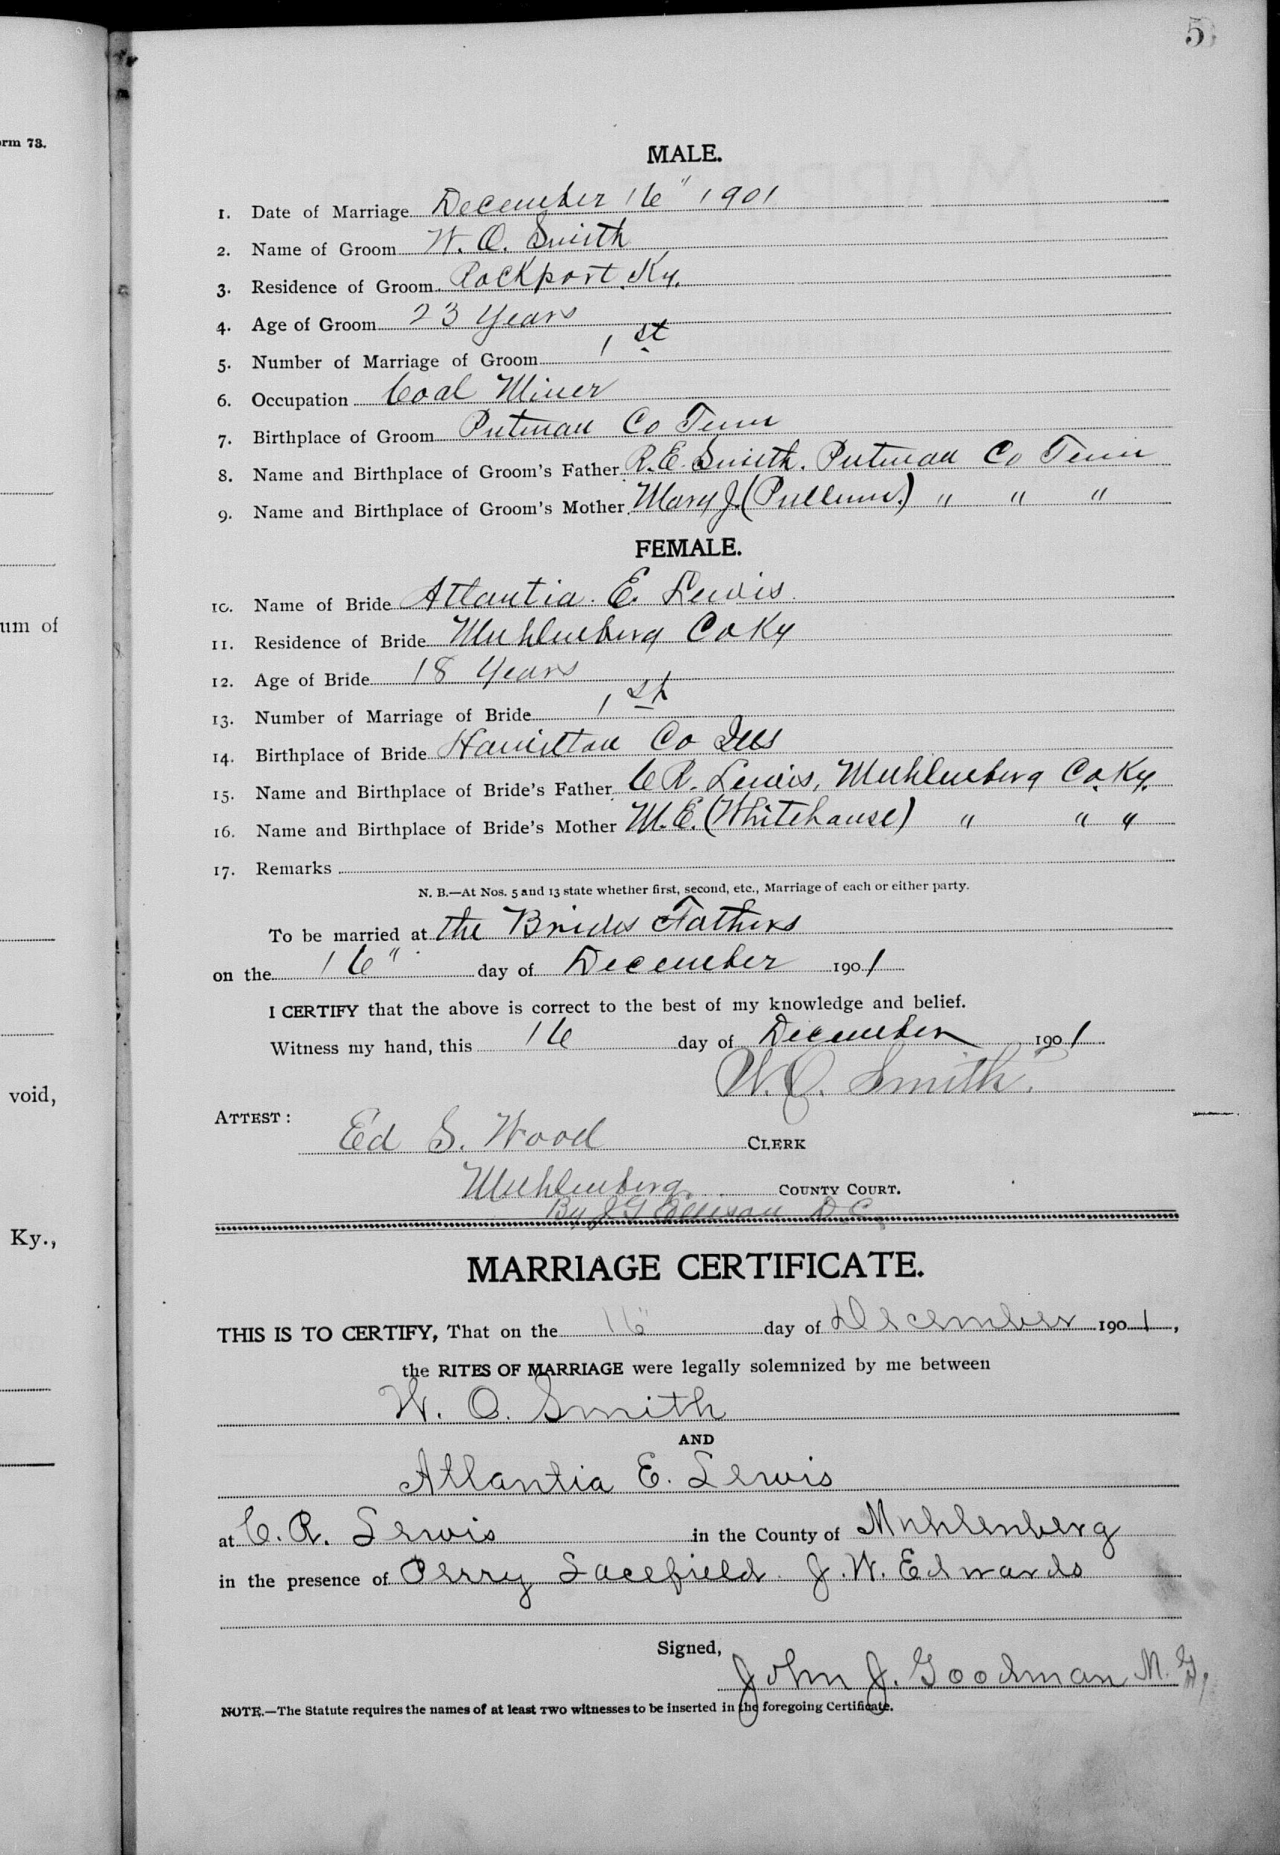 5
orm 73.
MALE.
1. Date of Marriage December 16" 1901
2. Name of Groom W. O. Smith
3. Residence of Groom Rockport, Ky.
4. Age of Groom 23 Years
5. Number of Marriage of Groom 1st
6. Occupation Coal Miner
7. Birthplace of Groom Putman Co Tenn
8. Name and Birthplace of Groom's Father R. E. Smith. Putman Co Tenn
9. Name and Birthplace of Groom's Mother Mary J. (Pullum.) " " "
FEMALE.
10. Name of Bride Atlantia. E. Lewis
um of
11. Residence of Bride Muhlenberg Co Ky
12. Age of Bride 18 Years
13. Number of Marriage of Bride 1st
14. Birthplace of Bride Hamilton Co Ills
15. Name and Birthplace of Bride's Father C R. Lewis, Muhlenberg Co. Ky.
16. Name and Birthplace of Bride's Mother M. E. (Whitehouse) " " "
17. Remarks
N. B.—At Nos. 5 and 13 state whether first, second, etc., Marriage of each or either party.
To be married at the Brides Fathers
on the 16" day of December 1901
I CERTIFY that the above is correct to the best of my knowledge and belief.
Witness my hand, this 16 day of December 1901
void,
W. O. Smith.
ATTEST:
Ed S. Wood CLERK
Muhlenberg COUNTY COURT.
By J G Ellison D. C.
Ky.,
MARRIAGE CERTIFICATE.
THIS IS TO CERTIFY, That on the 16" day of December 1901,
the RITES OF MARRIAGE were legally solemnized by me between
W. O. Smith
AND
Atlantia E. Lewis
at C. R. Lewis in the County of Muhlenberg
in the presence of Perry Lacefield. J. W. Edwards
Signed,
John J. Goodman M. G.
NOTE.—The Statute requires the names of at least TWO witnesses to be inserted in the foregoing Certificate.